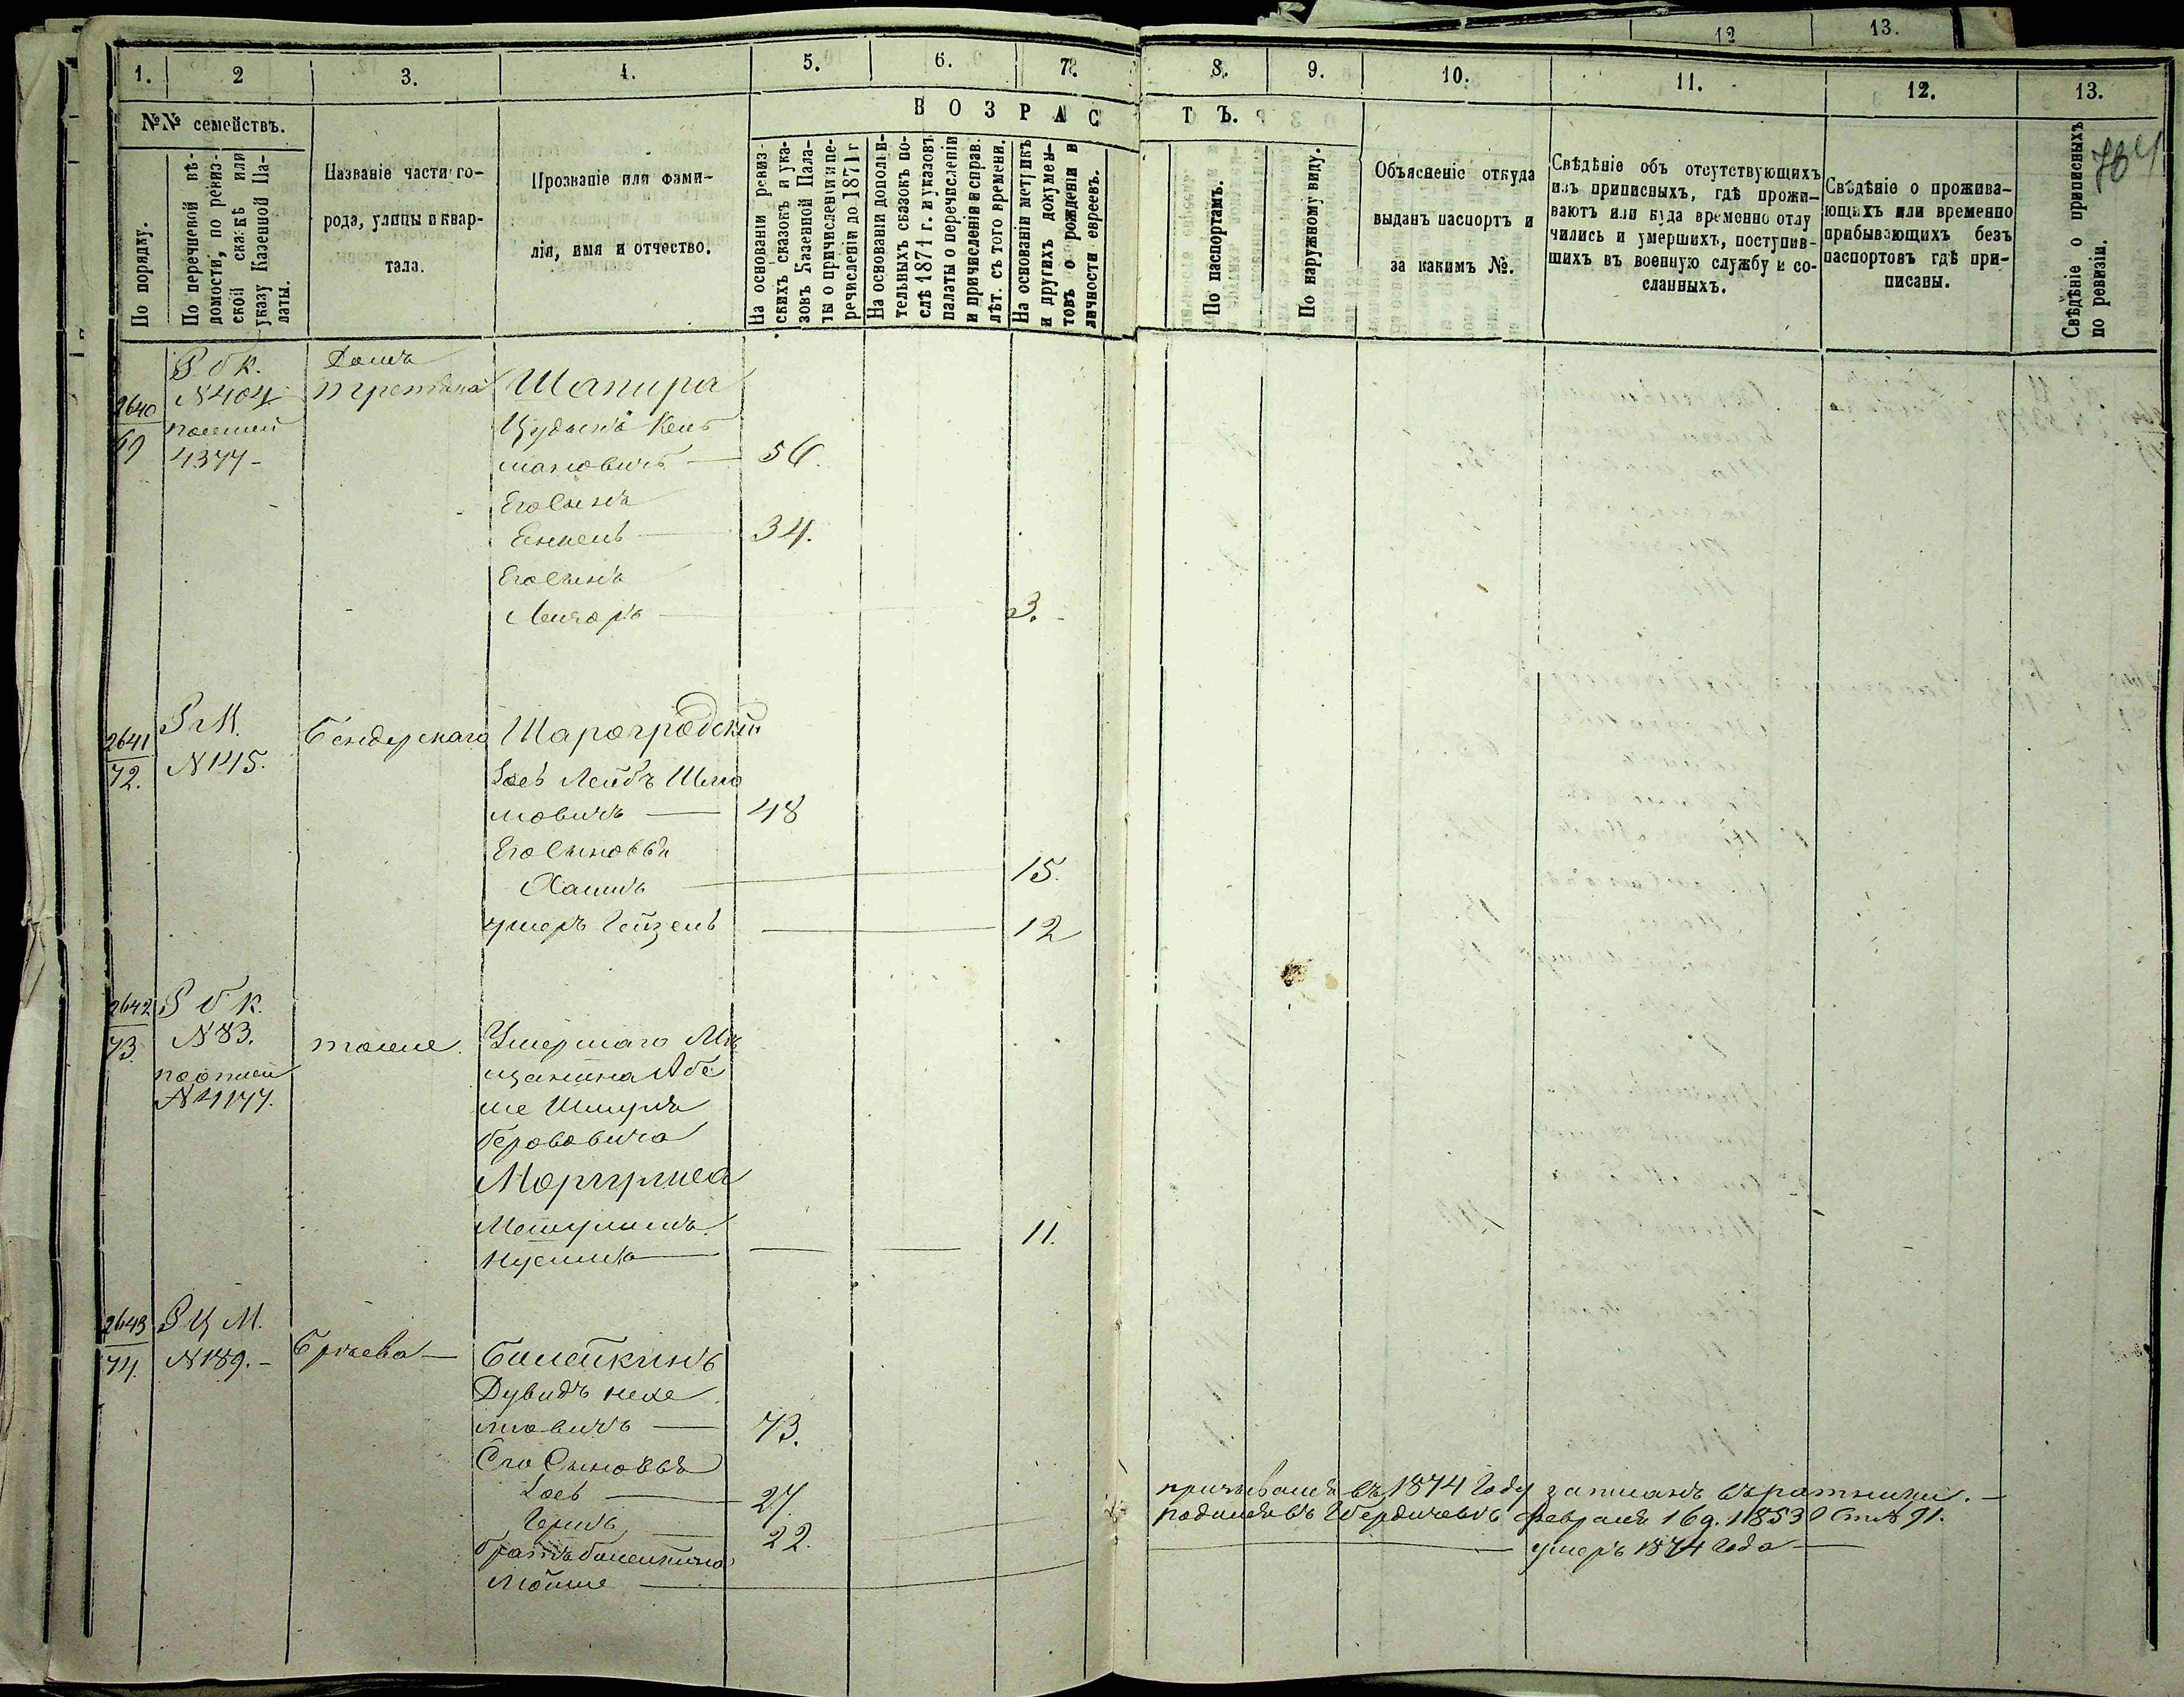 12 13.
1. 2 3. 4. 5. 6. 7. 8. 9. 10. 11. 12. 13.
№№ семействъ.
ВОЗРАСТЪ.
По порядку.
По перечневой вѣ-
домости, по ревиз-
ской сказкѣ или
указу Казенной Па-
латы.
Названіе части го-
рода, улицы и квар-
тала.
Прозваніе или фами-
лія, имя и отчество.
На основаніи ревиз-
скихъ сказокъ и ука-
зовъ Казенной Пала-
ты о причисленіи и пе-
речисленіи до 1871 г
На основаніи дополни-
тельныхъ сказокъ по-
слѣ 1871 г. и указовъ
палаты о перечисленіи
и причисленіи и справ.
лѣт. съ того времени.
На основаніи метрикъ
и другихъ докумен-
товъ о рожденіи и
личности евреевъ.
По паспортамъ.
По наружному виду.
Объясненіе откуда
выданъ паспортъ и
за какимъ №.
Свѣдѣніе объ отсутствующихъ
изъ приписныхъ, гдѣ прожи-
ваютъ или куда временно отлу
чились и умершихъ, поступив-
шихъ въ военную службу и со-
сланныхъ.
Свѣдѣніе о прожива-
ющихъ или временно
прибывающихъ безъ
паспортовъ гдѣ при-
писаны.
Свѣдѣніе о приписныхъ
по ревизіи.
704
Р б к. Домъ
2640 N404 Шапира
69
4377 –
мановичъ — 56.
Его сынъ
Енкель — 34.
Его сынъ
Лейзоръ — 3.
2641 Бендерскаго Шарогродскій
72. N 145.
Іосъ Лейбъ Шмо
мовичъ — 48
Его сыновья
Хаимъ — 15.
умеръ Гейзель — 12
2642 Р б к.
73. N 83. тоже. Умершаго Мѣ
щанина Або
N 4177. ше Шмуля
Беровича
Моргулиса
11.
Нусимъ —
2643 Р ц М.
74. N 189. –
Дувидъ Нехе
мовичъ — 73.
Его Сыновья
Іосъ — 27. въ 1874 Году записанъ въ ратники. –
Гершъ — 22. родился въ Бердичевѣ февраля 16 д. 1853 91.
— умеръ 1874 Года —
Мойше —